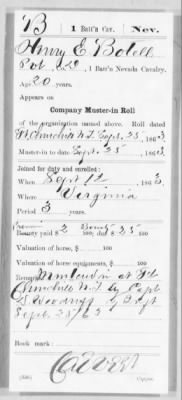 B | 1 Batt'n Cav. | Nev.
Henry E
Pvt, Co. , 1 Batt'n Nevada Cavalry.
Age 20 years.
Appears on
Company Muster-in Roll
of the organization named above. Roll dated
Ft Churchill N.T. Sept. 25, 1863
Muster-in to date Sept. 25, 1863
Joined for duty and enrolled:
When Sept 12, 1863
Where Virginia
Period 3 years.
Bounty paid $ 100; due $ 25 100
Valuation of horse, $ 100
Valuation of horse equipments, $ 100
Remarks: Mustered in at Ft
Churchill N.T. by Capt
Sept 25/63
Book mark:
(336) Copyist.